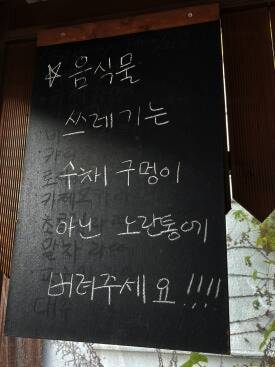 ☆ 음식물
쓰레기는
수채 구멍이
아닌 노란통에
버려주세요!!!!